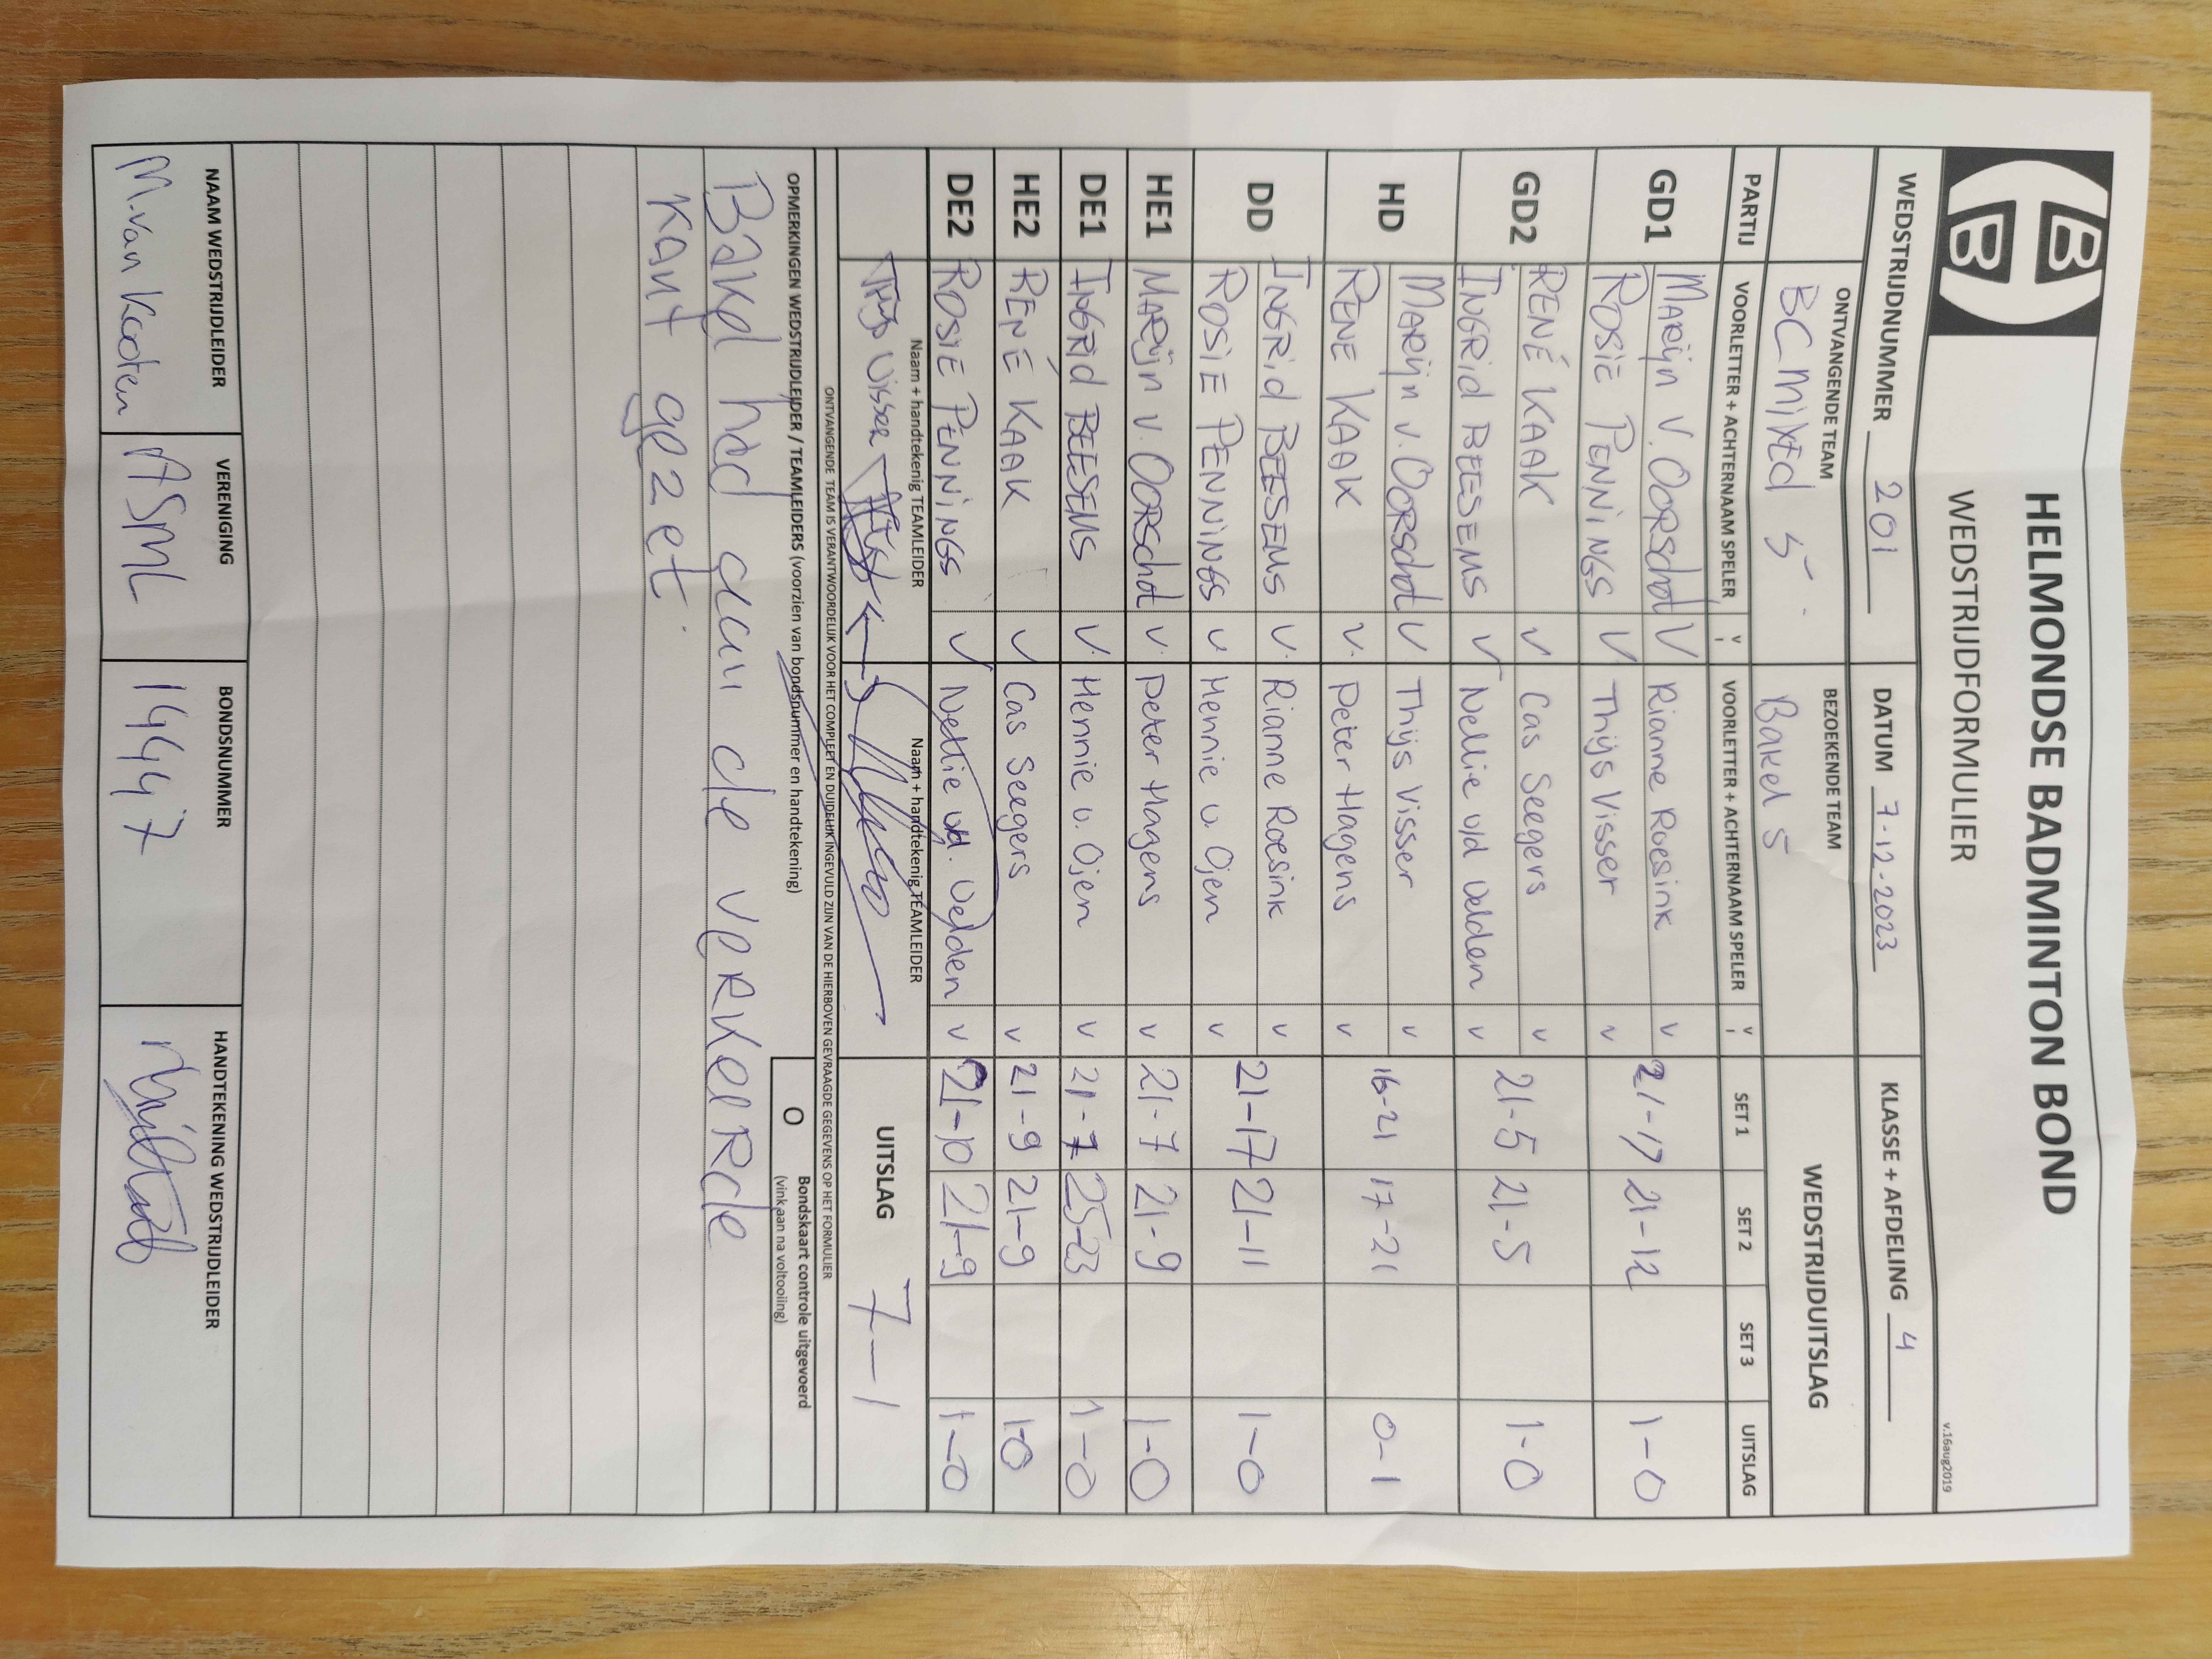 HELMONDSE BADMINTON BOND
WEDSTRIJDFORMULIER
v.16aug2019
WEDSTRIJDNUMMER 201 DATUM 7-12-2023 KLASSE + AFDELING 4
ONTVANGENDE TEAM BEZOEKENDE TEAM WEDSTRIJDUITSLAG
BC Mixed 5 Bakel 5
PARTIJ VOORLETTER + ACHTERNAAM SPELER V VOORLETTER + ACHTERNAAM SPELER V SET 1 SET 2 SET 3 UITSLAG
GD1 Marijn v. Oorschot V Rianne Roesink v 21-17 21-12 1-0
ROSIE PENNINGS V Thijs Visser v
GD2 RENÉ KAAK V Cas Seegers v 21-5 21-5 1-0
INGRid BEESEMS V Nellie v/d Velden v
HD Marijn v. Oorschot V Thijs Visser v 16-21 17-21 0-1
RENE KAAK V. Peter Hagens v
DD INGRid BEESEMS V. Rianne Roesink v 21-17 21-11 1-0
ROSIE PENNINGS v Hennie v. Ojen v
HE1 MARijn v. OORSchot V. Peter Hagens v 21-7 21-9 1-0
DE1 INGRid BEESEMS V. Hennie v. Ojen v 21-7 25-23 1-0
HE2 RENÉ KAAK V Cas Seegers v 21-9 21-9 1-0
DE2 ROSIE PENNINGS V Nellie v/d. Velden v 21-10 21-9 1-0
Naam + handtekenig TEAMLEIDER Naam + handtekenig TEAMLEIDER
Thijs Visser UITSLAG 7-1
ONTVANGENDE TEAM IS VERANTWOORDELIJK VOOR HET COMPLEET EN DUIDELIJK INGEVULD ZIJN VAN DE HIERBOVEN GEVRAAGDE GEGEVENS OP HET FORMULIER
OPMERKINGEN WEDSTRIJDLEIDER / TEAMLEIDERS (voorzien van bondsnummer en handtekening) O Bondskaart controle uitgevoerd
(vink aan na voltooiing)
Bakel had aan de verkeerde
kant gezet.
NAAM WEDSTRIJDLEIDER VERENIGING BONDSNUMMER HANDTEKENING WEDSTRIJDLEIDER
M. van Kooten ASML 14447